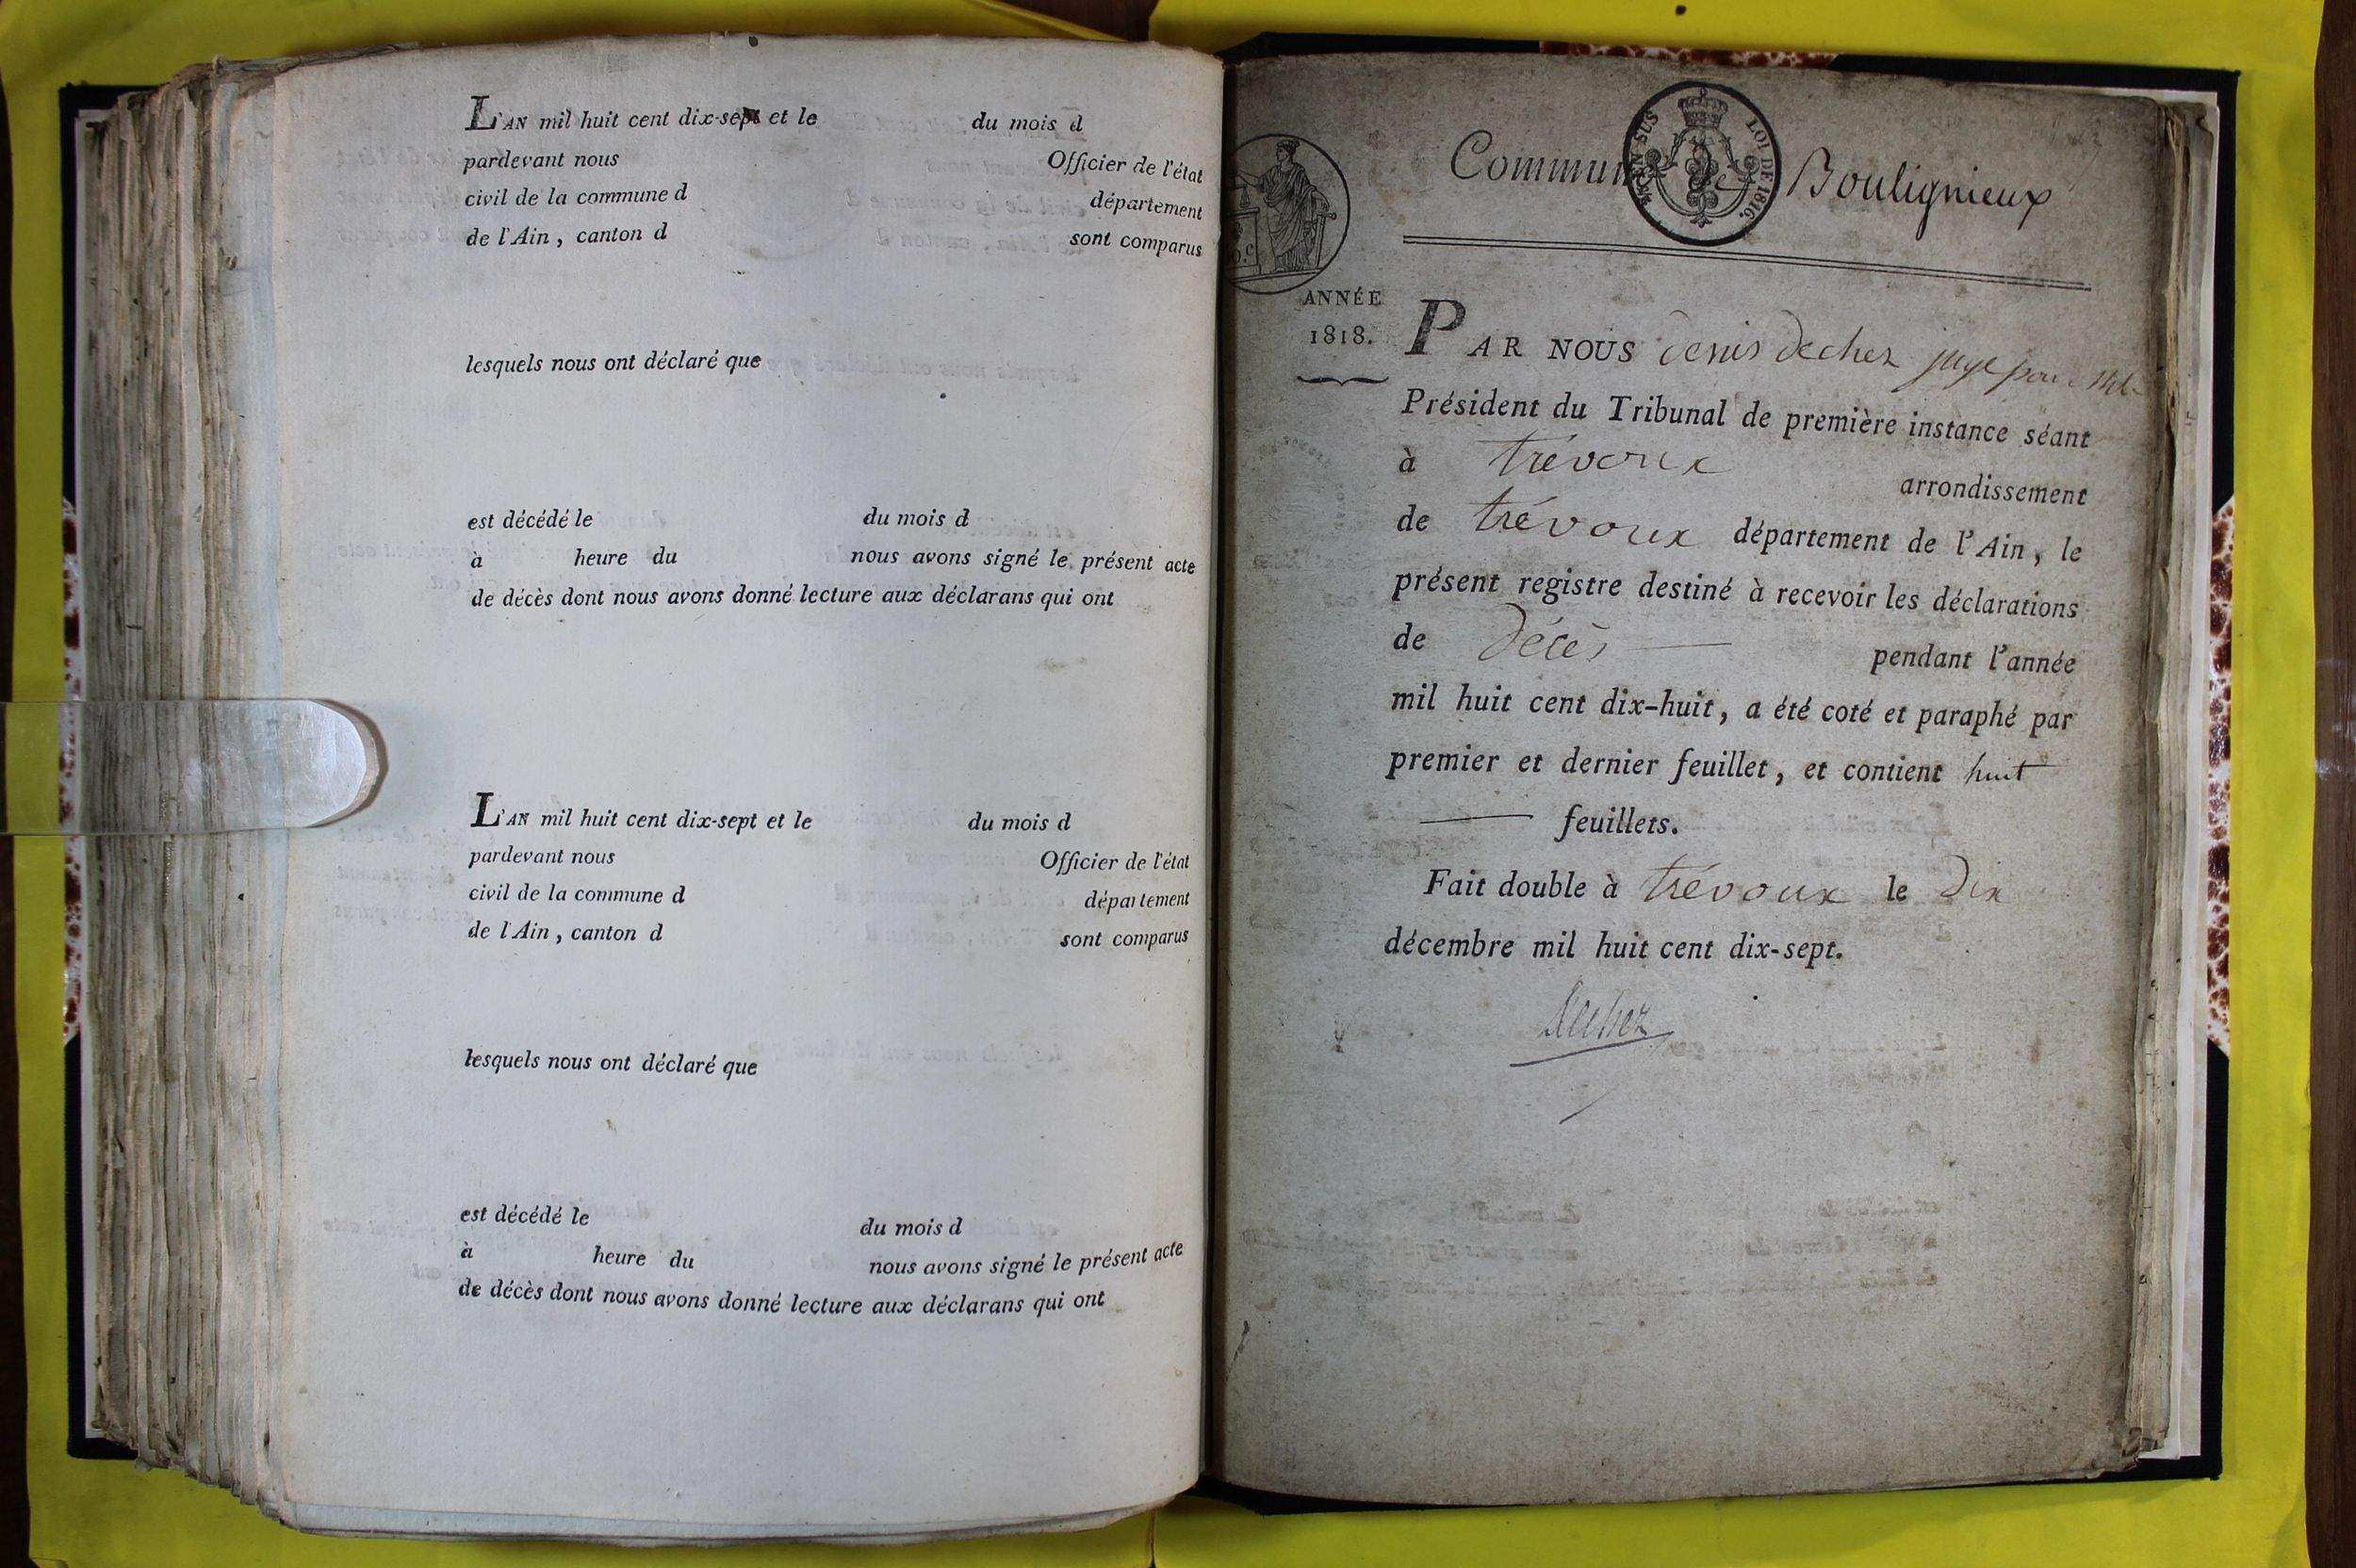 L'AN mil huit cent dix-sept et le du mois d
pardevant nous Officier de l'état
civil de la commune d département
de l'Ain, canton d sont comparus
lesquels nous ont déclaré que
est décédé le du mois d
à heure du nous avons signé le présent acte
de décès dont nous avons donné lecture aux déclarans qui ont
L'AN mil huit cent dix-sept et le du mois d
pardevant nous Officier de l'état
civil de la commune d département
de l'Ain, canton d sont comparus
lesquels nous ont déclaré que
est décédé le du mois d
à heure du nous avons signé le présent acte
de décès dont nous avons donné lecture aux déclarans qui ont
Commune de Boulignieux
SUS LOI DE 1816.
ANNÉE
1818.
PAR NOUS denis dechez juge pour
Président du Tribunal de première instance séant
à trévoux arrondissement
de trévoux département de l'Ain, le
présent registre destiné à recevoir les déclarations
de Décès pendant l'année
mil huit cent dix-huit, a été coté et paraphé par
premier et dernier feuillet, et contient huit
feuillets.
Fait double à trévoux le dix
décembre mil huit cent dix-sept.
Dechez